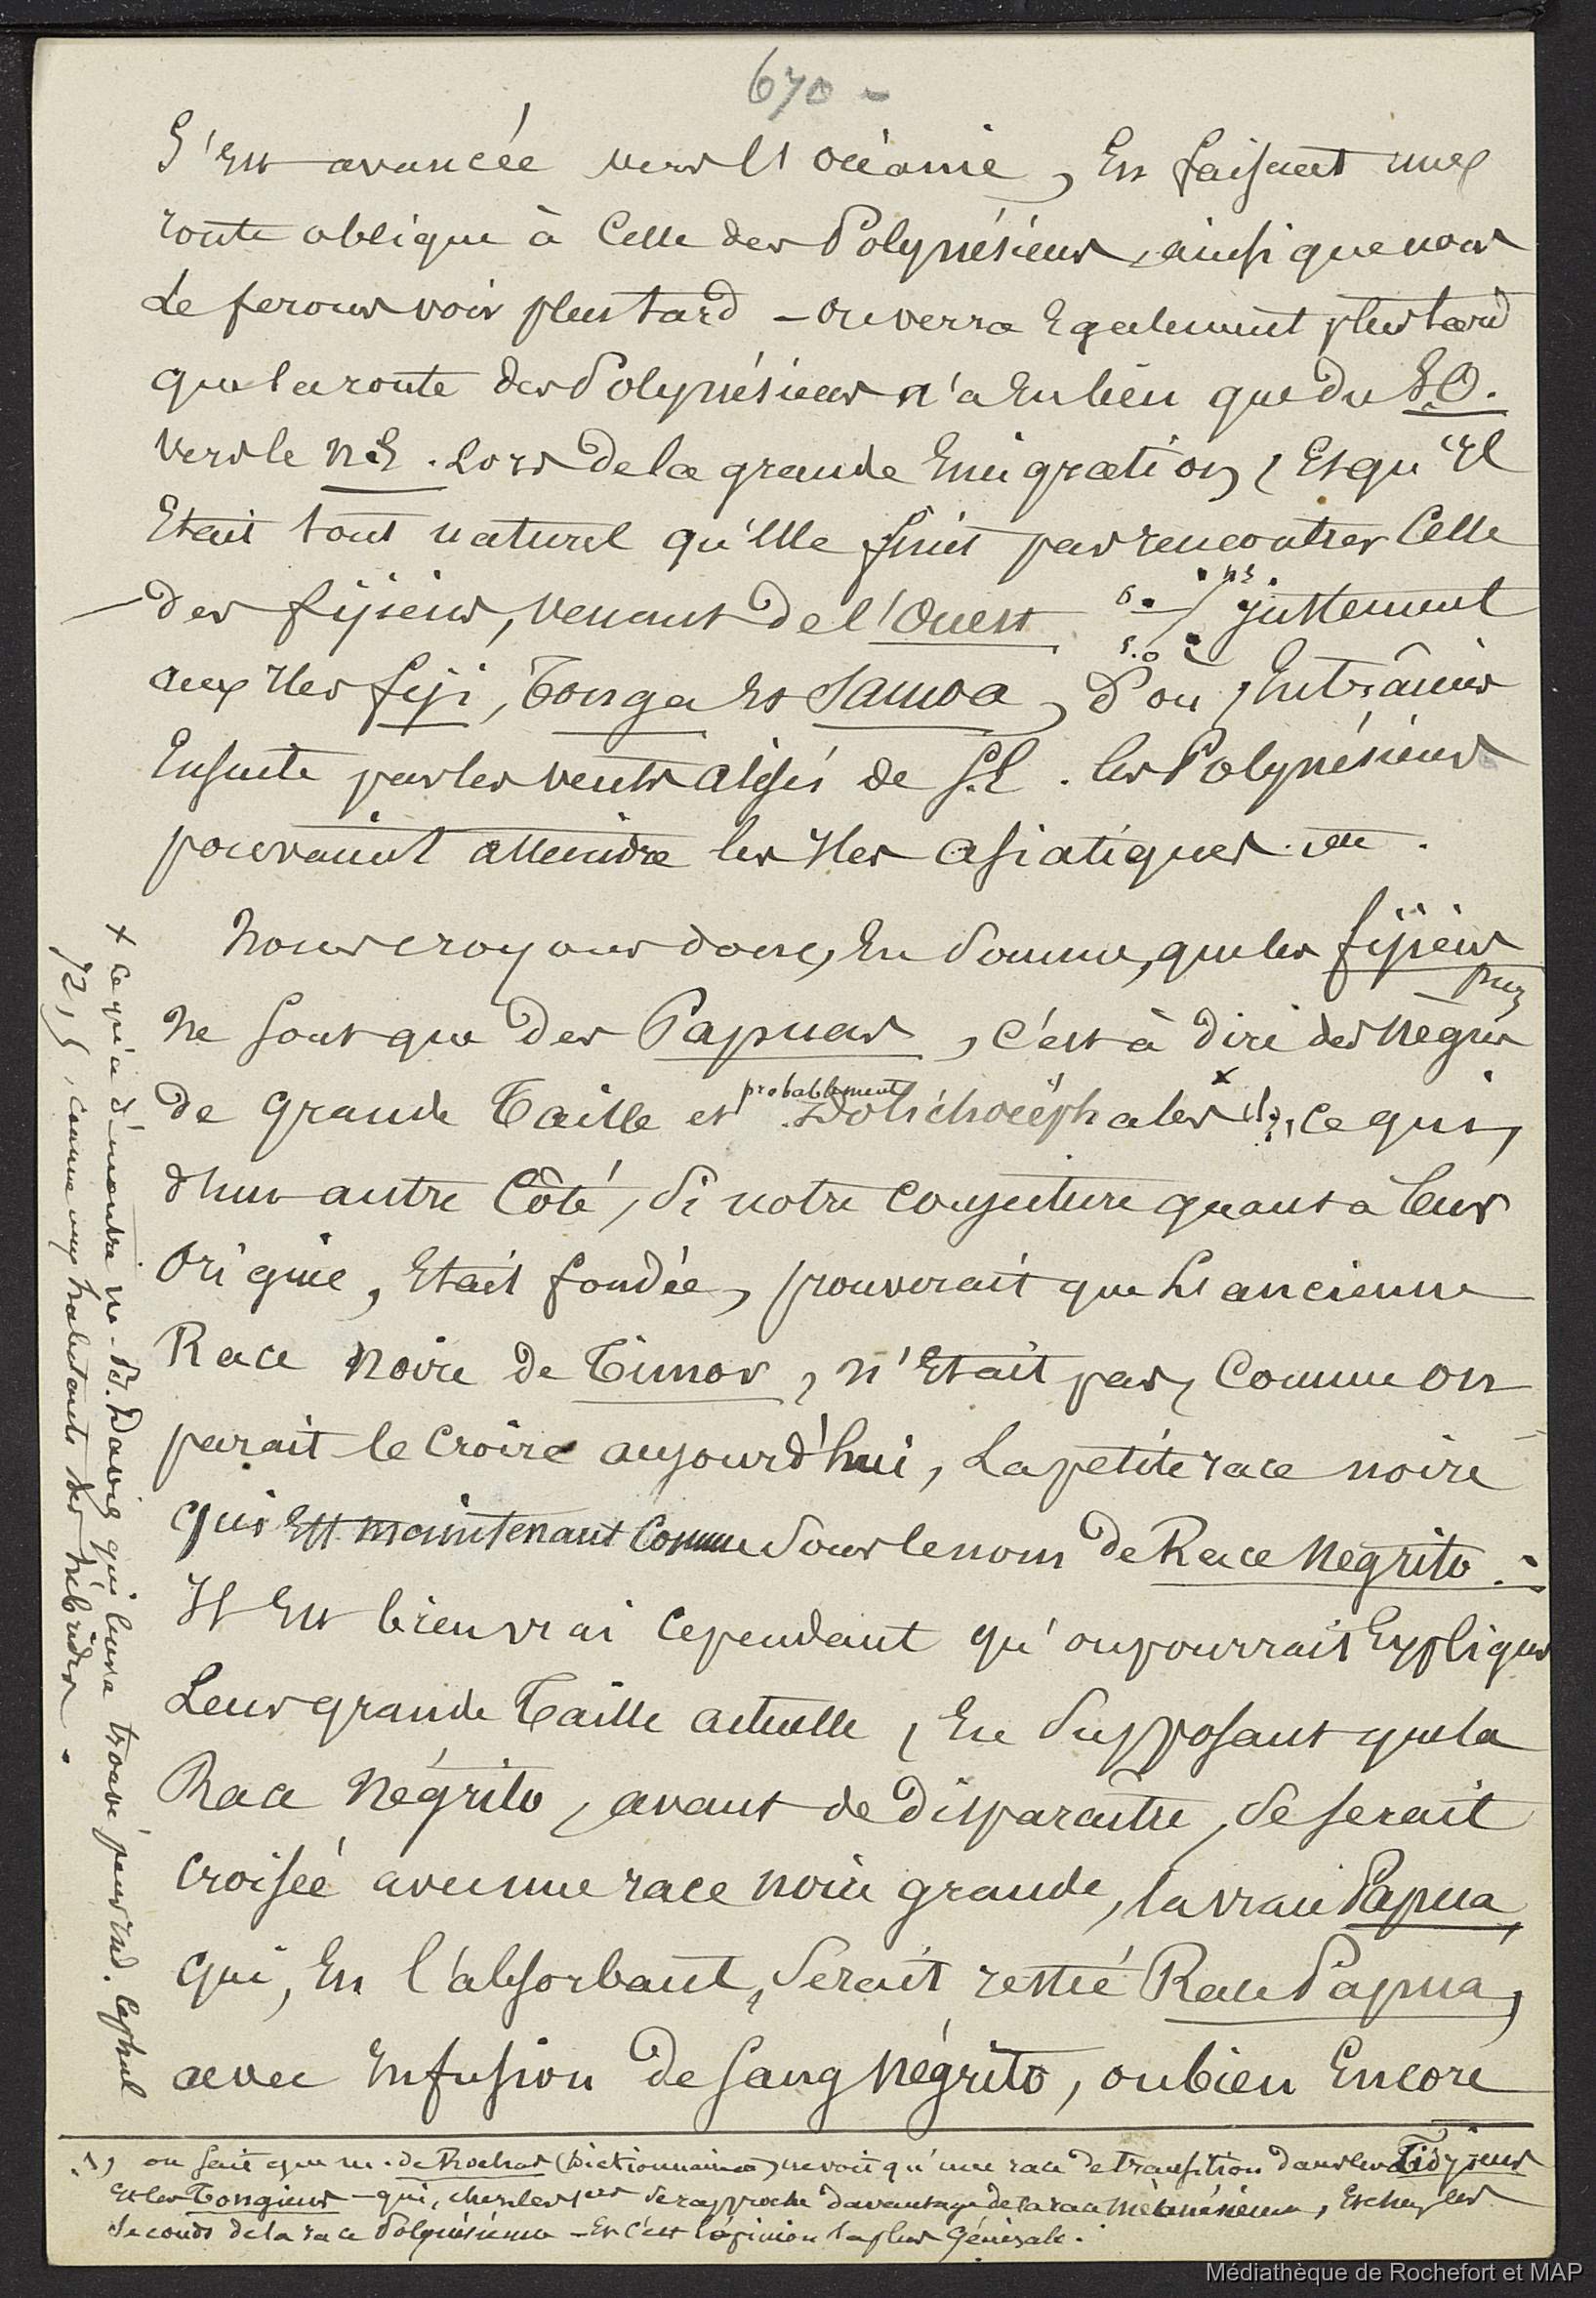 670 -
S'est avancée vers l'océanie, En faisant une
route oblique à Celle des Polynésiens, ainsi que nous
le ferons voir plus tard - on verra Egalement plus tard
que la route des Polynésiens n'a Eu lieu que du S.O.
vers le N.E. Lors de la grande Emigration, Et qu'il
Etait tout naturel qu'Elle finit par rencontrer Celle
des fijiens, venant de l'Ouest justement
o. n.E
s.o
aux Iles fiji, Tonga Et Samoa, D'où, Entraînés
Ensuite par les vents alisés de S.E. les Polynésiens
pouvaient atteindre les Iles asiatiques
Nous croyons donc, En Somme, que les fijiens
ne sont que des Papuas, c'est à dire des nègres
de grande Taille et probablement Dolichocéphales x (1), ce qui,
d'un autre Côté, Si notre Conjecture quant à leur
Origine, Etait fondée, prouverait que l'ancienne
Race Noire de Timor, n'Etait pas, Comme on
parait le croire aujourd'hui, La petite race noire
qui Est maintenant Connue Sous le nom de Race Négrito.
Il Est bien vrai Cependant qu'on pourrait Expliquer
Leur grande Taille actuelle, En Supposant que la
Race Négrito, avant de disparaître, Se serait
croisée avec une race noire grande, la vraie Papua,
qui, En l'absorbant, Serait restée Race Papua,
avec Infusion de sang Négrito, ou bien Encore
(1) on sait que m. de Rochas (Dictionnaire) ne voit qu'une race de transition dans les Fidjiens
Et les Tongiens - qui, chez les 1ers Se rapproche davantage de la race Mélanésienne, Et chez les
Seconds de la race Polynésienne - Et c'est l'opinion la plus Générale.
x Ce qu'a démontré m. Bd. Davis qui leur a trouvé pour ind. Cephal
72,5, comme aux habitants des hébrides.
Médiathèque de Rochefort et MAP